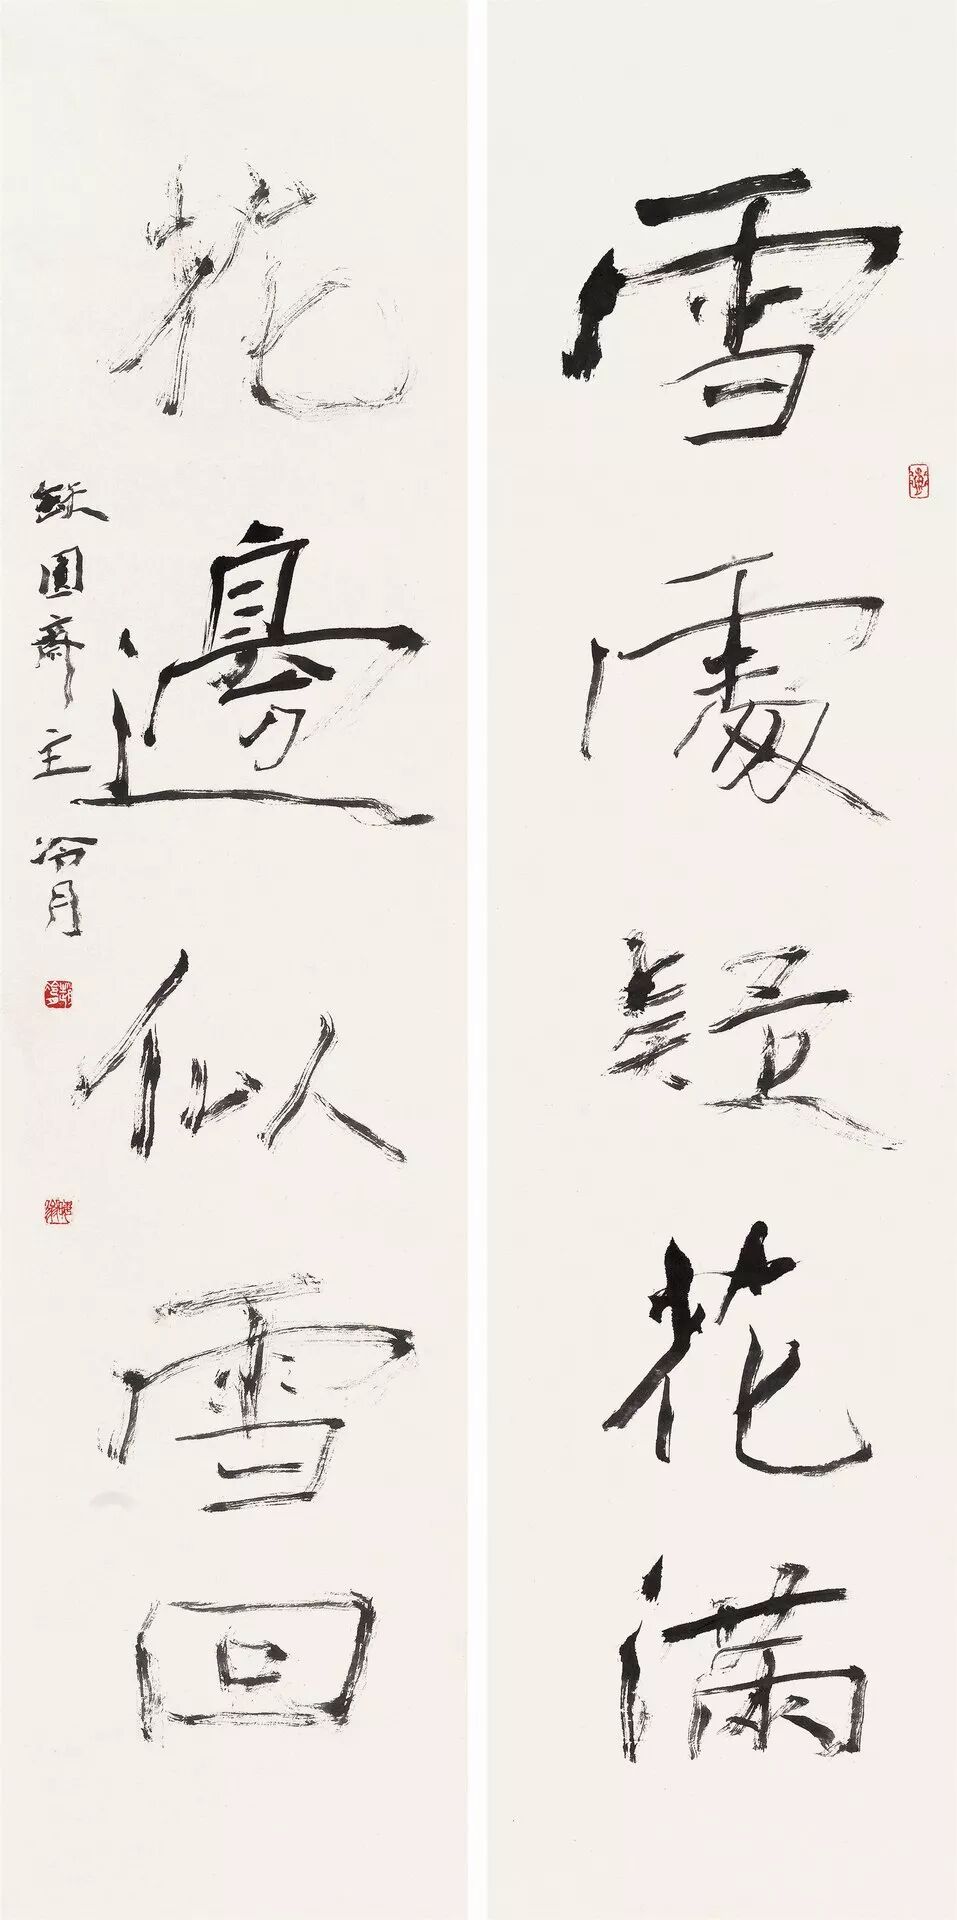 雪處疑花滿
花邊似雪回
缺圓齋主冷月